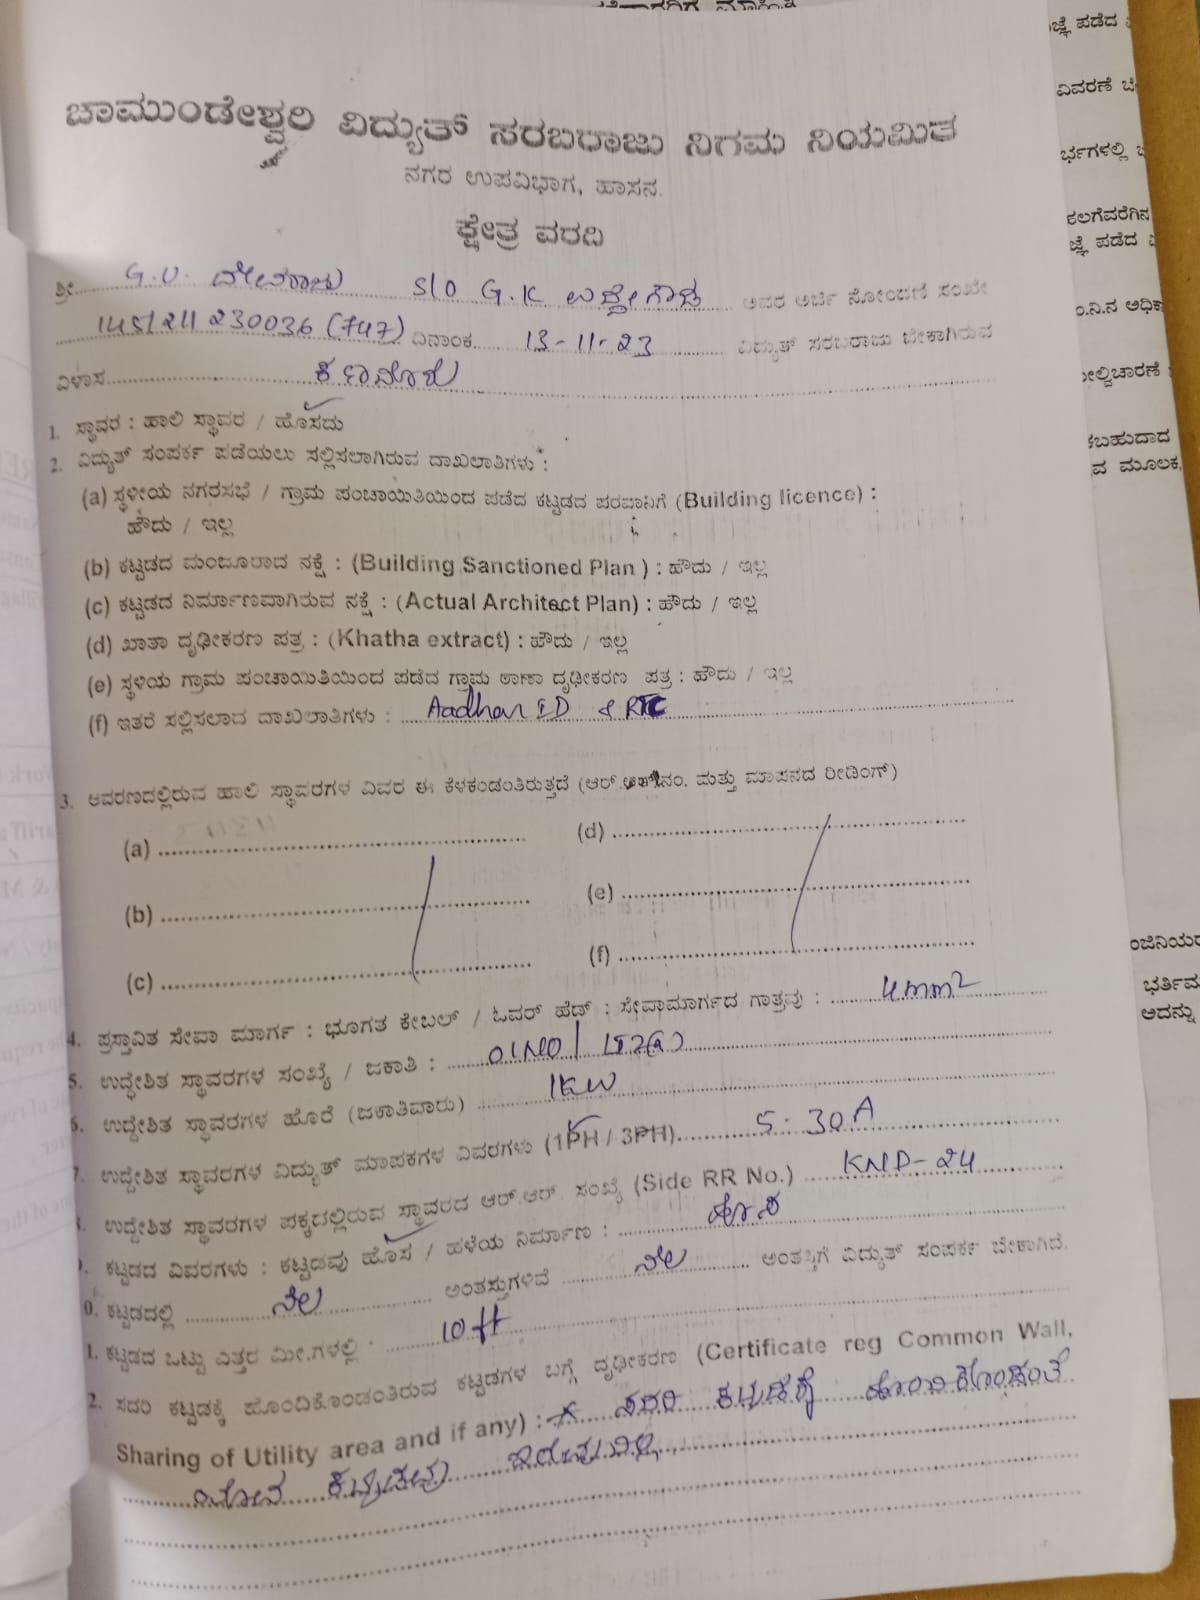 ಚಾಮುಂಡೇಶ್ವರಿ ವಿದ್ಯುತ್ ಸರಬರಾಜು ನಿಗಮ ನಿಯಮಿತ
ನಗರ ಉಪವಿಭಾಗ, ಹಾಸನ.
ಕ್ಷೇತ್ರ ವರದಿ
ಶ್ರೀ G.U. ದೇವರಾಜು S/O G.K ಅವರ ಅರ್ಜಿ ನೋಂದಣಿ ಸಂಖ್ಯೆ
145/211 230036 (747) ದಿನಾಂಕ 13-11-23 ವಿದ್ಯುತ್ ಸರಬರಾಜು ಬೇಕಾಗಿರುವ
ವಿಳಾಸ
1. ಸ್ಥಾವರ : ಹಾಲಿ ಸ್ಥಾವರ / ಹೊಸದು
2. ವಿದ್ಯುತ್ ಸಂಪರ್ಕ ಪಡೆಯಲು ಸಲ್ಲಿಸಲಾಗಿರುವ ದಾಖಲಾತಿಗಳು :
(a) ಸ್ಥಳೀಯ ನಗರಸಭೆ / ಗ್ರಾಮ ಪಂಚಾಯಿತಿಯಿಂದ ಪಡೆದ ಕಟ್ಟಡದ ಪರವಾನಿಗೆ (Building licence) :
ಹೌದು / ಇಲ್ಲ
(b) ಕಟ್ಟಡದ ಮಂಜೂರಾದ ನಕ್ಷೆ : (Building Sanctioned Plan ) : ಹೌದು / ಇಲ್ಲ
(c) ಕಟ್ಟಡದ ನಿರ್ಮಾಣವಾಗಿರುವ ನಕ್ಷೆ : (Actual Architect Plan) : ಹೌದು / ಇಲ್ಲ
(d) ಖಾತಾ ದೃಢೀಕರಣ ಪತ್ರ : (Khatha extract) : ಹೌದು / ಇಲ್ಲ
(e) ಸ್ಥಳಿಯ ಗ್ರಾಮ ಪಂಚಾಯಿತಿಯಿಂದ ಪಡೆದ ಗ್ರಾಮ ಠಾಣಾ ದೃಢೀಕರಣ ಪತ್ರ : ಹೌದು / ಇಲ್ಲ
(f) ಇತರೆ ಸಲ್ಲಿಸಲಾದ ದಾಖಲಾತಿಗಳು : Aadhar ID & RTC
3. ಆವರಣದಲ್ಲಿರುವ ಹಾಲಿ ಸ್ಥಾವರಗಳ ವಿವರ ಈ ಕೆಳಕಂಡಂತಿರುತ್ತದೆ (ಆರ್.ಆರ್.ನಂ. ಮತ್ತು ಮಾಪನದ ರೀಡಿಂಗ್)
(a) (d)
(b) (e)
(c) (f)
4. ಪ್ರಸ್ತಾವಿತ ಸೇವಾ ಮಾರ್ಗ : ಭೂಗತ ಕೇಬಲ್ / ಓವರ್ ಹೆಡ್ : ಸೇವಾಮಾರ್ಗದ ಗಾತ್ರವು : 4mm2
5. ಉದ್ದೇಶಿತ ಸ್ಥಾವರಗಳ ಸಂಖ್ಯೆ / ಜಕಾತಿ : 01NO / LT2(a)
6. ಉದ್ದೇಶಿತ ಸ್ಥಾವರಗಳ ಹೊರೆ (ಜಕಾತಿವಾರು) 1KW
7. ಉದ್ದೇಶಿತ ಸ್ಥಾವರಗಳ ವಿದ್ಯುತ್ ಮಾಪಕಗಳ ವಿವರಗಳು (1PH / 3PH) 5-30A
ಉದ್ದೇಶಿತ ಸ್ಥಾವರಗಳ ಪಕ್ಕದಲ್ಲಿರುವ ಸ್ಥಾವರದ ಆರ್.ಆರ್. ಸಂಖ್ಯೆ (Side RR No.) KND-24
ಕಟ್ಟಡದ ವಿವರಗಳು : ಕಟ್ಟಡವು ಹೊಸ / ಹಳೆಯ ನಿರ್ಮಾಣ : ಹೊಸ
0. ಕಟ್ಟಡದಲ್ಲಿ ನೆಲ ಅಂತಸ್ತುಗಳಿವೆ ನೆಲ ಅಂತಸ್ತಿಗೆ ವಿದ್ಯುತ್ ಸಂಪರ್ಕ ಬೇಕಾಗಿದೆ.
1. ಕಟ್ಟಡದ ಒಟ್ಟು ಎತ್ತರ ಮೀ.ಗಳಲ್ಲಿ : 10 ft
2. ಸದರಿ ಕಟ್ಟಡಕ್ಕೆ ಹೊಂದಿಕೊಂಡಂತಿರುವ ಕಟ್ಟಡಗಳ ಬಗ್ಗೆ ದೃಢೀಕರಣ (Certificate reg Common Wall,
Sharing of Utility area and if any) : ಸದರಿ ಕಟ್ಟಡಕ್ಕೆ ಹೊಂದಿಕೊಂಡಂತೆ
ಯಾವ ಕಟ್ಟಡವು ಇರುವುದಿಲ್ಲ.